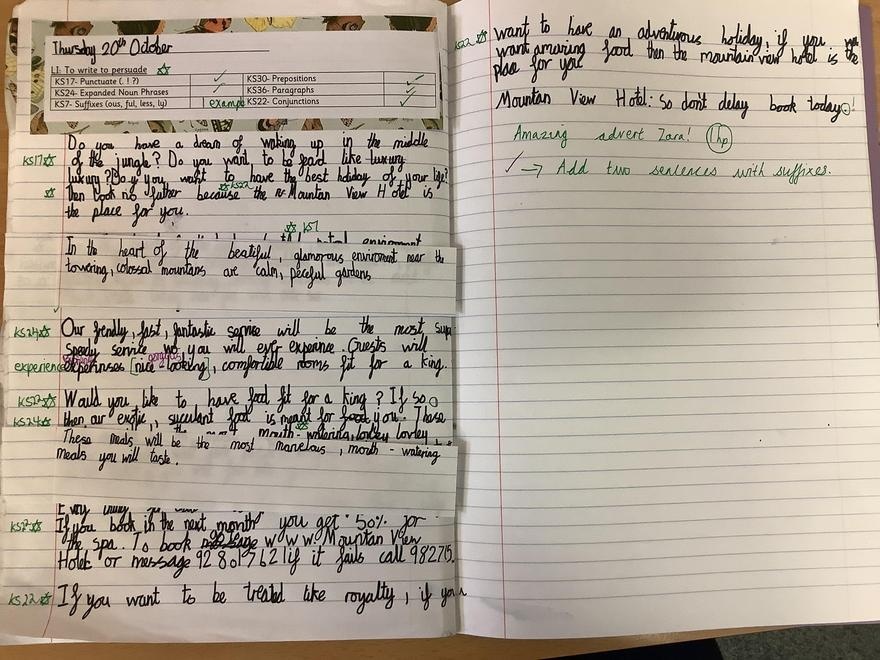 Thursday 20th October
LI: To write to persuade
KS17- Punctuate (. ! ?) ✓ KS30- Prepositions ✓
KS24- Expanded Noun Phrases ✓ KS36- Paragraphs ✓
KS7- Suffixes (ous, ful, less, ly) example KS22- Conjunctions ✓
Do you have a dream of waking up in the middle
KS17 of the jungle? Do you want to be
luxury? Do you want to have the best holiday of your life?
KS22
then book no futher because the Mountan View Hotel is
the place for you.
KS7
In the heart of the beatiful, glamorous enviroment near the
towering, colossal mountans are calm, peceful gardens
KS24 Our frendly, fast, fantastic service will be the most
speedy service you will ever experince. Guests will
gorgeous
experience [nice-looking], comfortible rooms fit for a king.
KS22 Would you like to have food fit for a king? If so
KS24 then our exotic, succulant food is meant for you. These
mouth-watering, lovley
These meals will be the most marvelous, mouth-watering
meals you will taste.
KS22 If you book in the next month you get 50% for
the spa. To book www.Mountan View
Hotel or message if it fails call
KS22 If you want to be treated like royalty, if you
KS22 want to have an adventurous holiday, if you
want amazing food then the mountain view hotel is the
place for you
Mountan View Hotel: So don't delay book today!
Amazing advert Zara! 1hp
✓ → Add two sentences with suffixes.